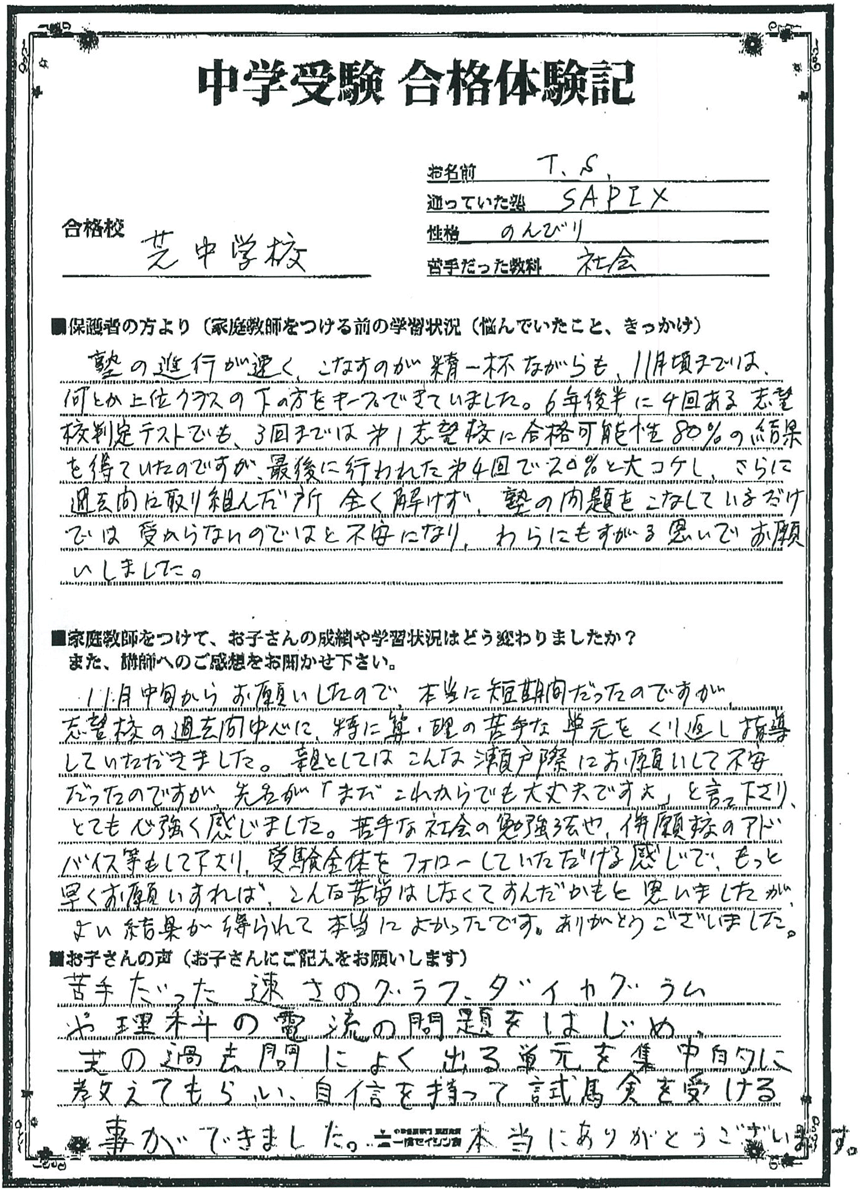 中学受験 合格体験記
お名前 T.S.
通っていた塾 SAPIX
合格校 芝中学校
性格 のんびり
苦手だった教科 社会
■保護者の方より（家庭教師をつける前の学習状況（悩んでいたこと、きっかけ）
塾の進行が速く、こなすのが精一杯ながらも、11月頃までは、
何とか上位クラスの下の方をキープできていました。6年後半に4回ある志望
校判定テストでも、3回までは第1志望校に合格可能性80%の結果
を得ていたのですが、最後に行われた第4回で20%と大コケし、さらに
過去問に取り組んだ所 全く解けず、塾の問題をこなしているだけ
では 受からないのではと不安になり、わらにもすがる思いでお願
いしました。
■家庭教師をつけて、お子さんの成績や学習状況はどう変わりましたか？
また、講師へのご感想をお聞かせ下さい。
11月中旬からお願いしたので、本当に短期間だったのですが、
志望校の過去問中心に、特に算・理の苦手な単元をくり返し指導
していただきました。親としてはこんな瀬戸際にお願いして不安
だったのですが 先生が「まだこれからでも大丈夫ですよ」と言って下さり、
とても心強く感じました。苦手な社会の勉強法や、併願校のアド
バイス等もして下さり、受験全体をフォローしていただける感じで、もっと
早くお願いすれば、こんな苦労はしなくてすんだかもと思いましたが、
よい結果が得られて本当によかったです。ありがとうございました。
■お子さんの声（お子さんにご記入をお願いします）
苦手だった速さのグラフ、ダイヤグラム
や理科の電流の問題をはじめ、
芝の過去問によく出る単元を集中的に
教えてもらい、自信を持って試験を受ける
事ができました。 一橋セイシン会 本当にありがとうございます。